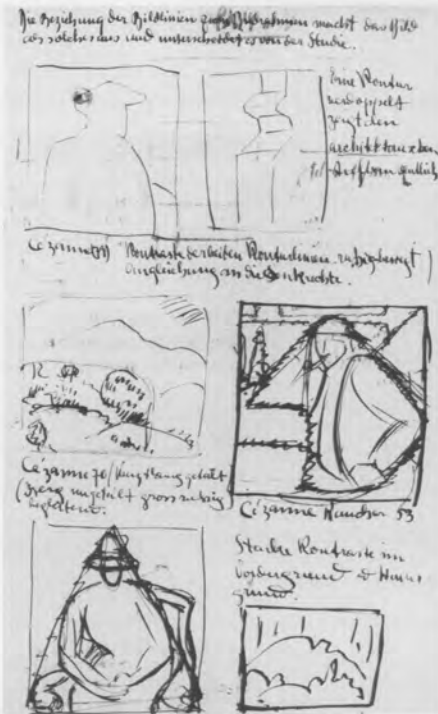 Die Beziehung der Bildlinien zum Bildrahmen macht das Bild
als solches aus und unterscheidet es von der Studie.
Eine Kontur
verdoppelt
zeigt den
architektonischen
Aufbau
Cézanne Kontraste der beiden Konturlinien ruhig bewegt)
Angleichung an die Senkrechte.
Cézanne 70
(Berg ungeteilt gross ruhig
begleitend.
Cézanne Raucher 53
Starke Kontraste im
Vordergrund &
grund.